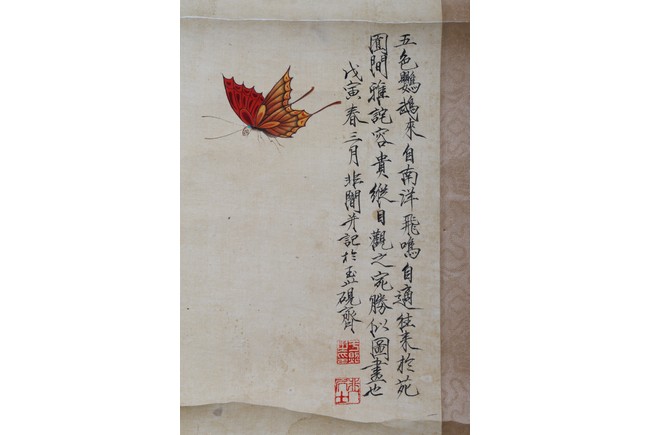 五色鸚鵡來自南洋飛鳴自適往來於苑
囿間雅詫容貴縱目觀之宛勝似圖畫也
戊寅春三月非闇并記於玉山硯齋